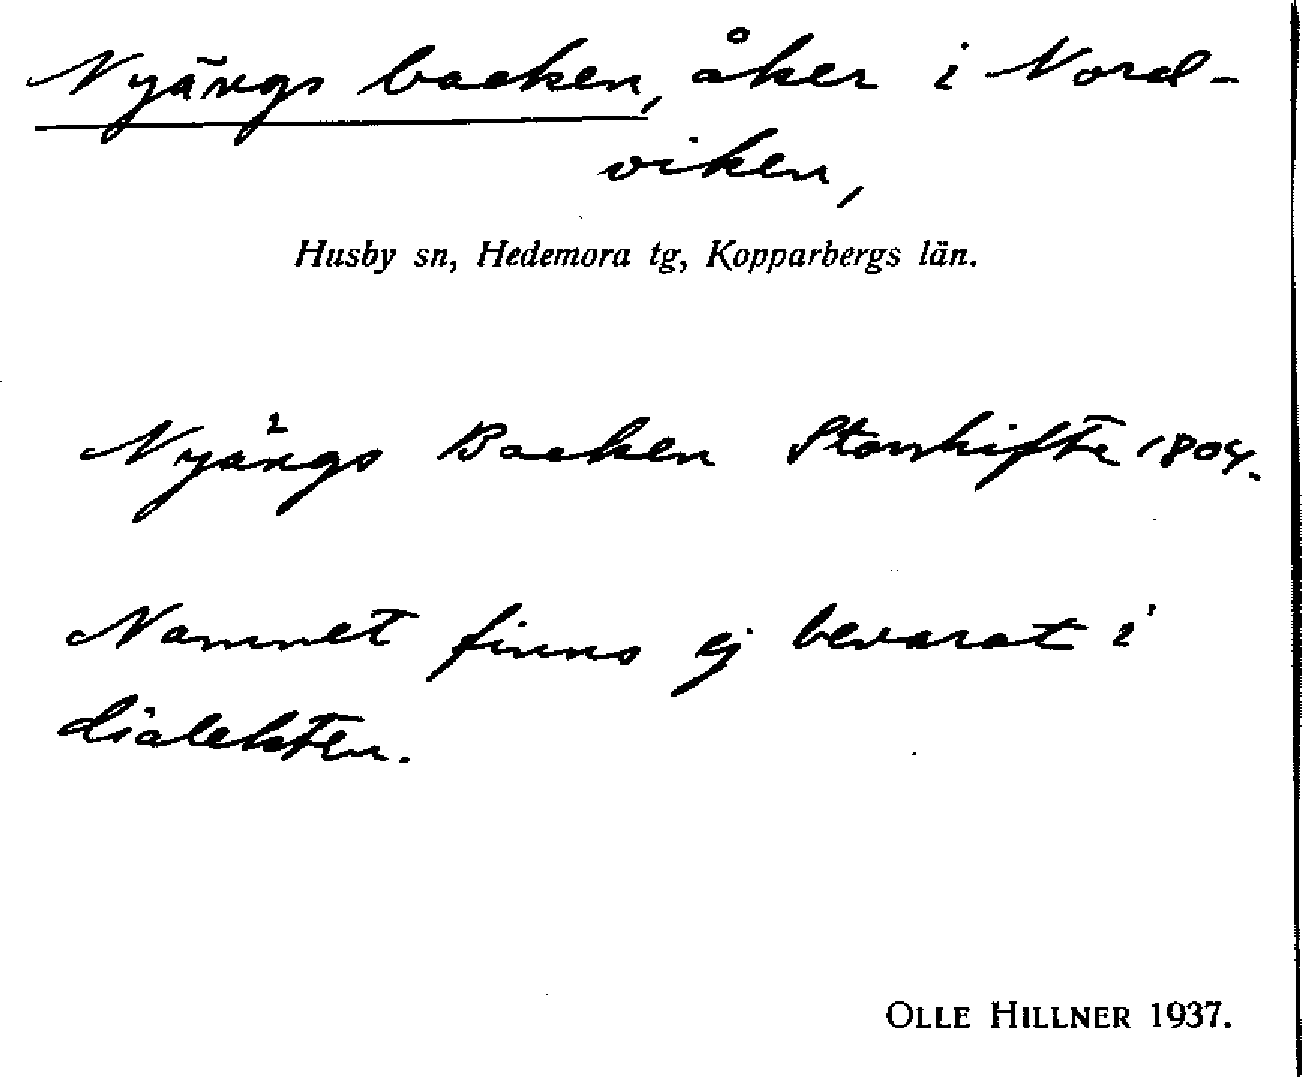 Nyängs backen, åker i Nord-
viken,
Husby sn, Hedemora tg, Kopparbergs län.
Nyängs Backen Storskifte 1804.
Namnet finns ej bevarat i
dialekten.
OLLE HILLNER 1937.